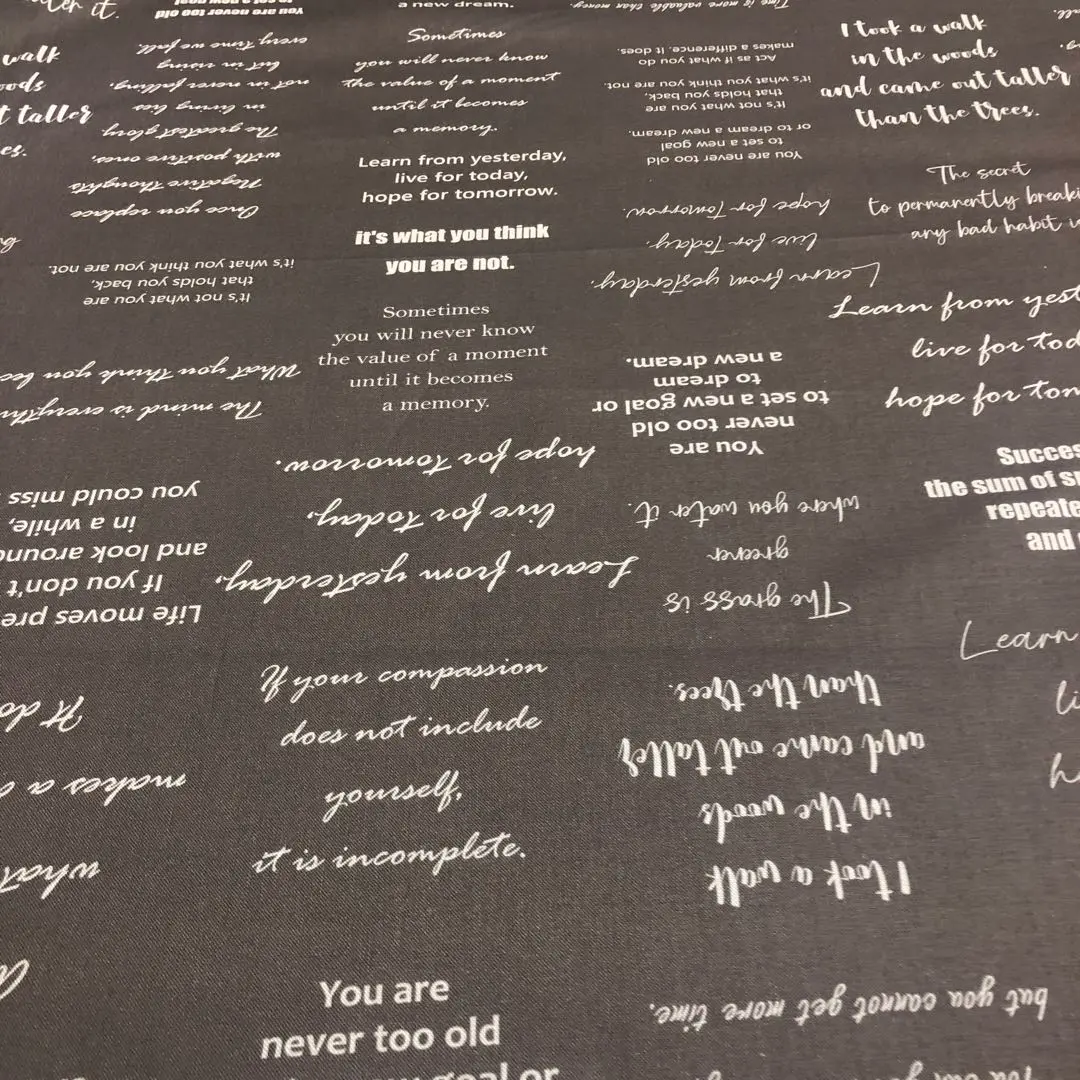 a new dream.
Sometimes
you will never know
the value of a moment
until it becomes
a memory.
Learn from yesterday,
live for today,
hope for tomorrow.
it's what you think
you are not.
Sometimes
you will never know
the value of a moment
until it becomes
a memory.
If your compassion
does not include
yourself,
it is incomplete.
You are
never too old
goal or
I took a walk
in the woods
and came out taller
than the trees.
The secret
to permanently
any bad habit
Learn from
live for
hope for
the sum of
and
Learn
walk
taller
Time is more valuable than money.
You are never too old
The greatest glory
in living lies
not in never falling,
but in rising
every time we fall.
Once you replace
Negative thoughts
with positive ones,
It's not what you are
that holds you back,
it's what you think you are not.
The mind is
What you think you
Life moves
If you don't
and look
in a while,
you could miss
Learn from yesterday,
live for today,
hope for tomorrow.
Act as if what you do
makes a difference, It does.
It's not what you are
that holds you back,
it's what you think you are not.
You are never too old
to set a new goal
or to dream a new dream.
Learn from yesterday,
live for today,
hope for tomorrow.
You are
never too old
to set a new goal or
to dream
a new dream.
The grass is
greener
where you water it.
I took a walk
in the woods
and came out taller
than the trees.
what
makes a
It
You can get
but you cannot get more time.